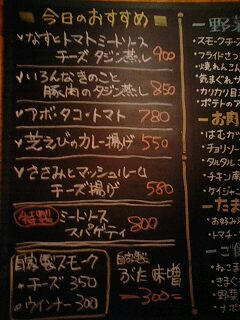 今日のおすすめ
なすとトマトミートソース
チーズ タジン蒸し 900
いろんなきのこと
豚肉のタジン蒸し 850
アボ・タコ・トマト 780
芝えびのカレー揚げ 550
ささみとマッシュルーム
チーズ揚げ 580
特製 ミートソース
スパゲティ 800
自家製スモーク
・チーズ 350
・ウインナー 300
自家製
ぶた味噌
300
一野菜
・スモークチーズ
・フライドさつ
・焼れんこん
・気まぐれサ
・カリカリ目玉
・ポテトのア
ーお肉
・はむカツ
・チョリソー
・タルタルコ
・チキン南
・ケイジャン
ーたま
・お好み
・トマチー
ーご飯
・ねこま
・きまぐ
・野菜
・ナポ